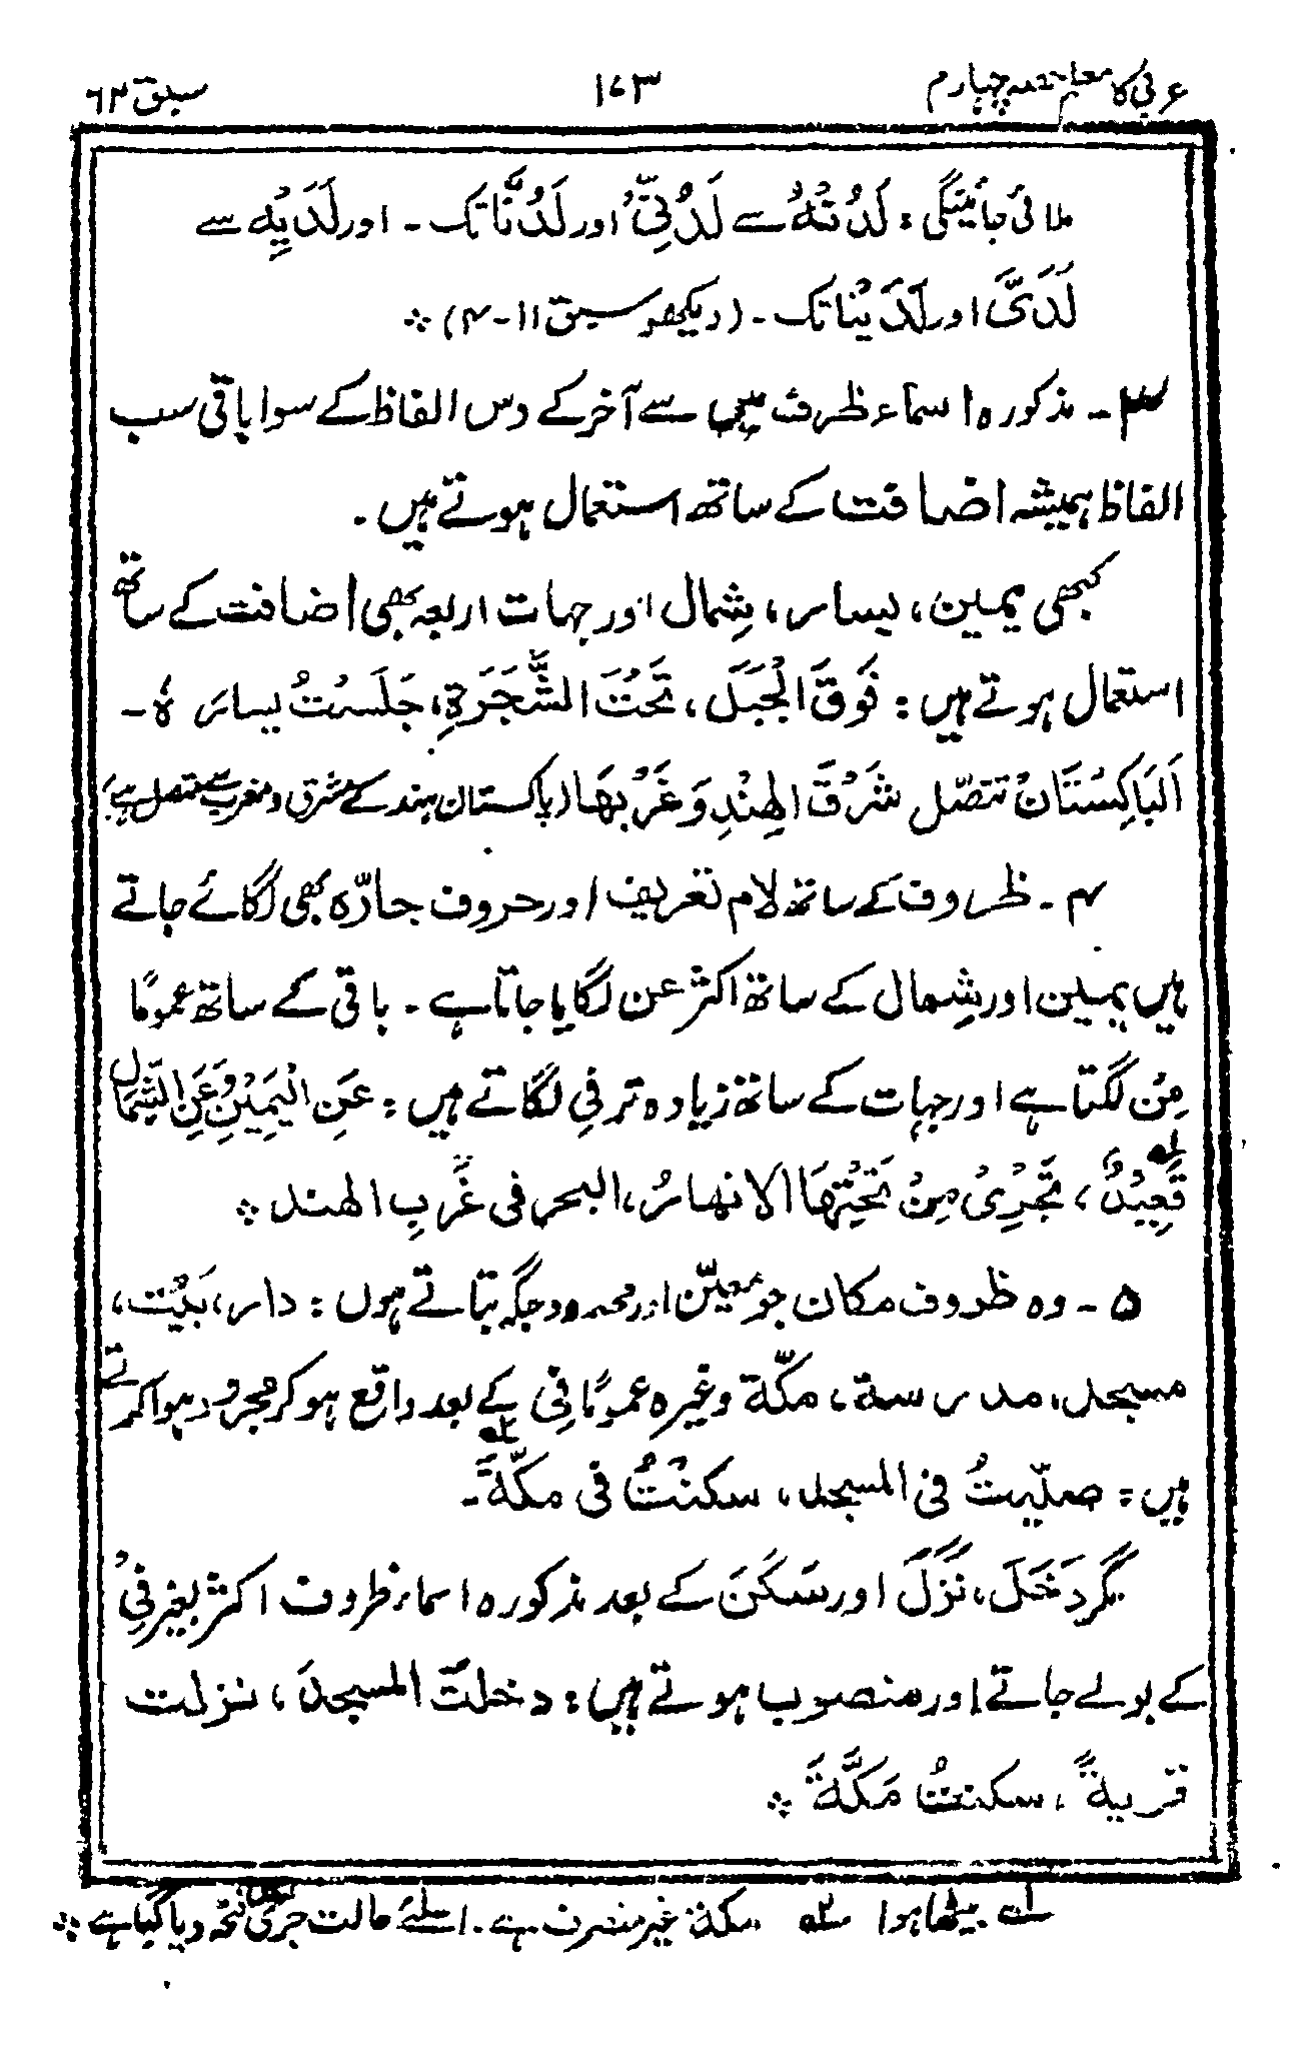 عربی کا معلم حصہ چہارم
۱۷۳
سبق ۶۲
ملائی جائینگی: لَدُنْهُ سے لَدُنِّیْ اور لَدُنَّا تک ۔ اور لَدَیْهِ سے
لَدَیَّ اور لَدَیْنا تک ۔ (دیکھو سبق ۱۱-۴) ؞
۳ ۔ مذکورہ اسماء ظرف میں سے آخر کے دس الفاظ کے سوا باقی سب
الفاظ ہمیشہ اضافت کے ساتھ استعمال ہوتے ہیں ۔
کبھی یمین، یسار، شِمال اور جہات اربعہ بھی اضافت کے ساتھ
استعمال ہوتے ہیں: فَوْقَ الْجَبَلِ، تَحْتَ الشَّجَرَةِ، جَلَسْتُ یسارَ هٗ ۔
اَلبَاکِسْتَانُ تتصّل شَرْقَ الهِنْدِ وَغَرْبَهَا (پاکستان ہند کے مشرق و مغرب سے متصل ہے)
۴ ۔ ظروف کے ساتھ لام تعریف اور حروف جارّہ بھی لگائے جاتے
ہیں یمین اور شِمال کے ساتھ اکثر عن لگایا جاتا ہے ۔ باقی کے ساتھ عموماً
مِنْ لگتا ہے اور جہات کے ساتھ زیادہ تر فِی لگاتے ہیں: عَنِ الْیَمِیْنِ وَعَنِ الشِّمَالِ
قَعِیْدٌ ۱؎، تَجْرِیْ مِنْ تَحْتِهَا الانهارُ، البحر فی غَرْبِ الهند ؞
۵ ۔ وہ ظروف مکان جو معیّن اور محدود جگہ بتاتے ہوں: دار، بَیْت،
مسجد، مدرسة، مکّة وغیرہ عموماً فِی کے بعد واقع ہوکر مجرور ہوا کرتے
ہیں: صلّیتُ فی المسجد، سکنْتُ فی مکّةَ ۲؎ ۔
مگر دَخَلَ، نَزَلَ اور سَکَنَ کے بعد مذکورہ اسماء ظروف اکثر بغیر فِیْ
کے بولے جاتے اور منصوب ہوتے ہیں: دخلتُ المسجدَ، نزلت
قریةً، سکنتُ مَکَّةَ ؞
۱؎ بیٹھا ہوا ۲؎ مکة غیر منصرف ہے. اسلئے حالت جری میں فتحہ دیا گیا ہے ؞